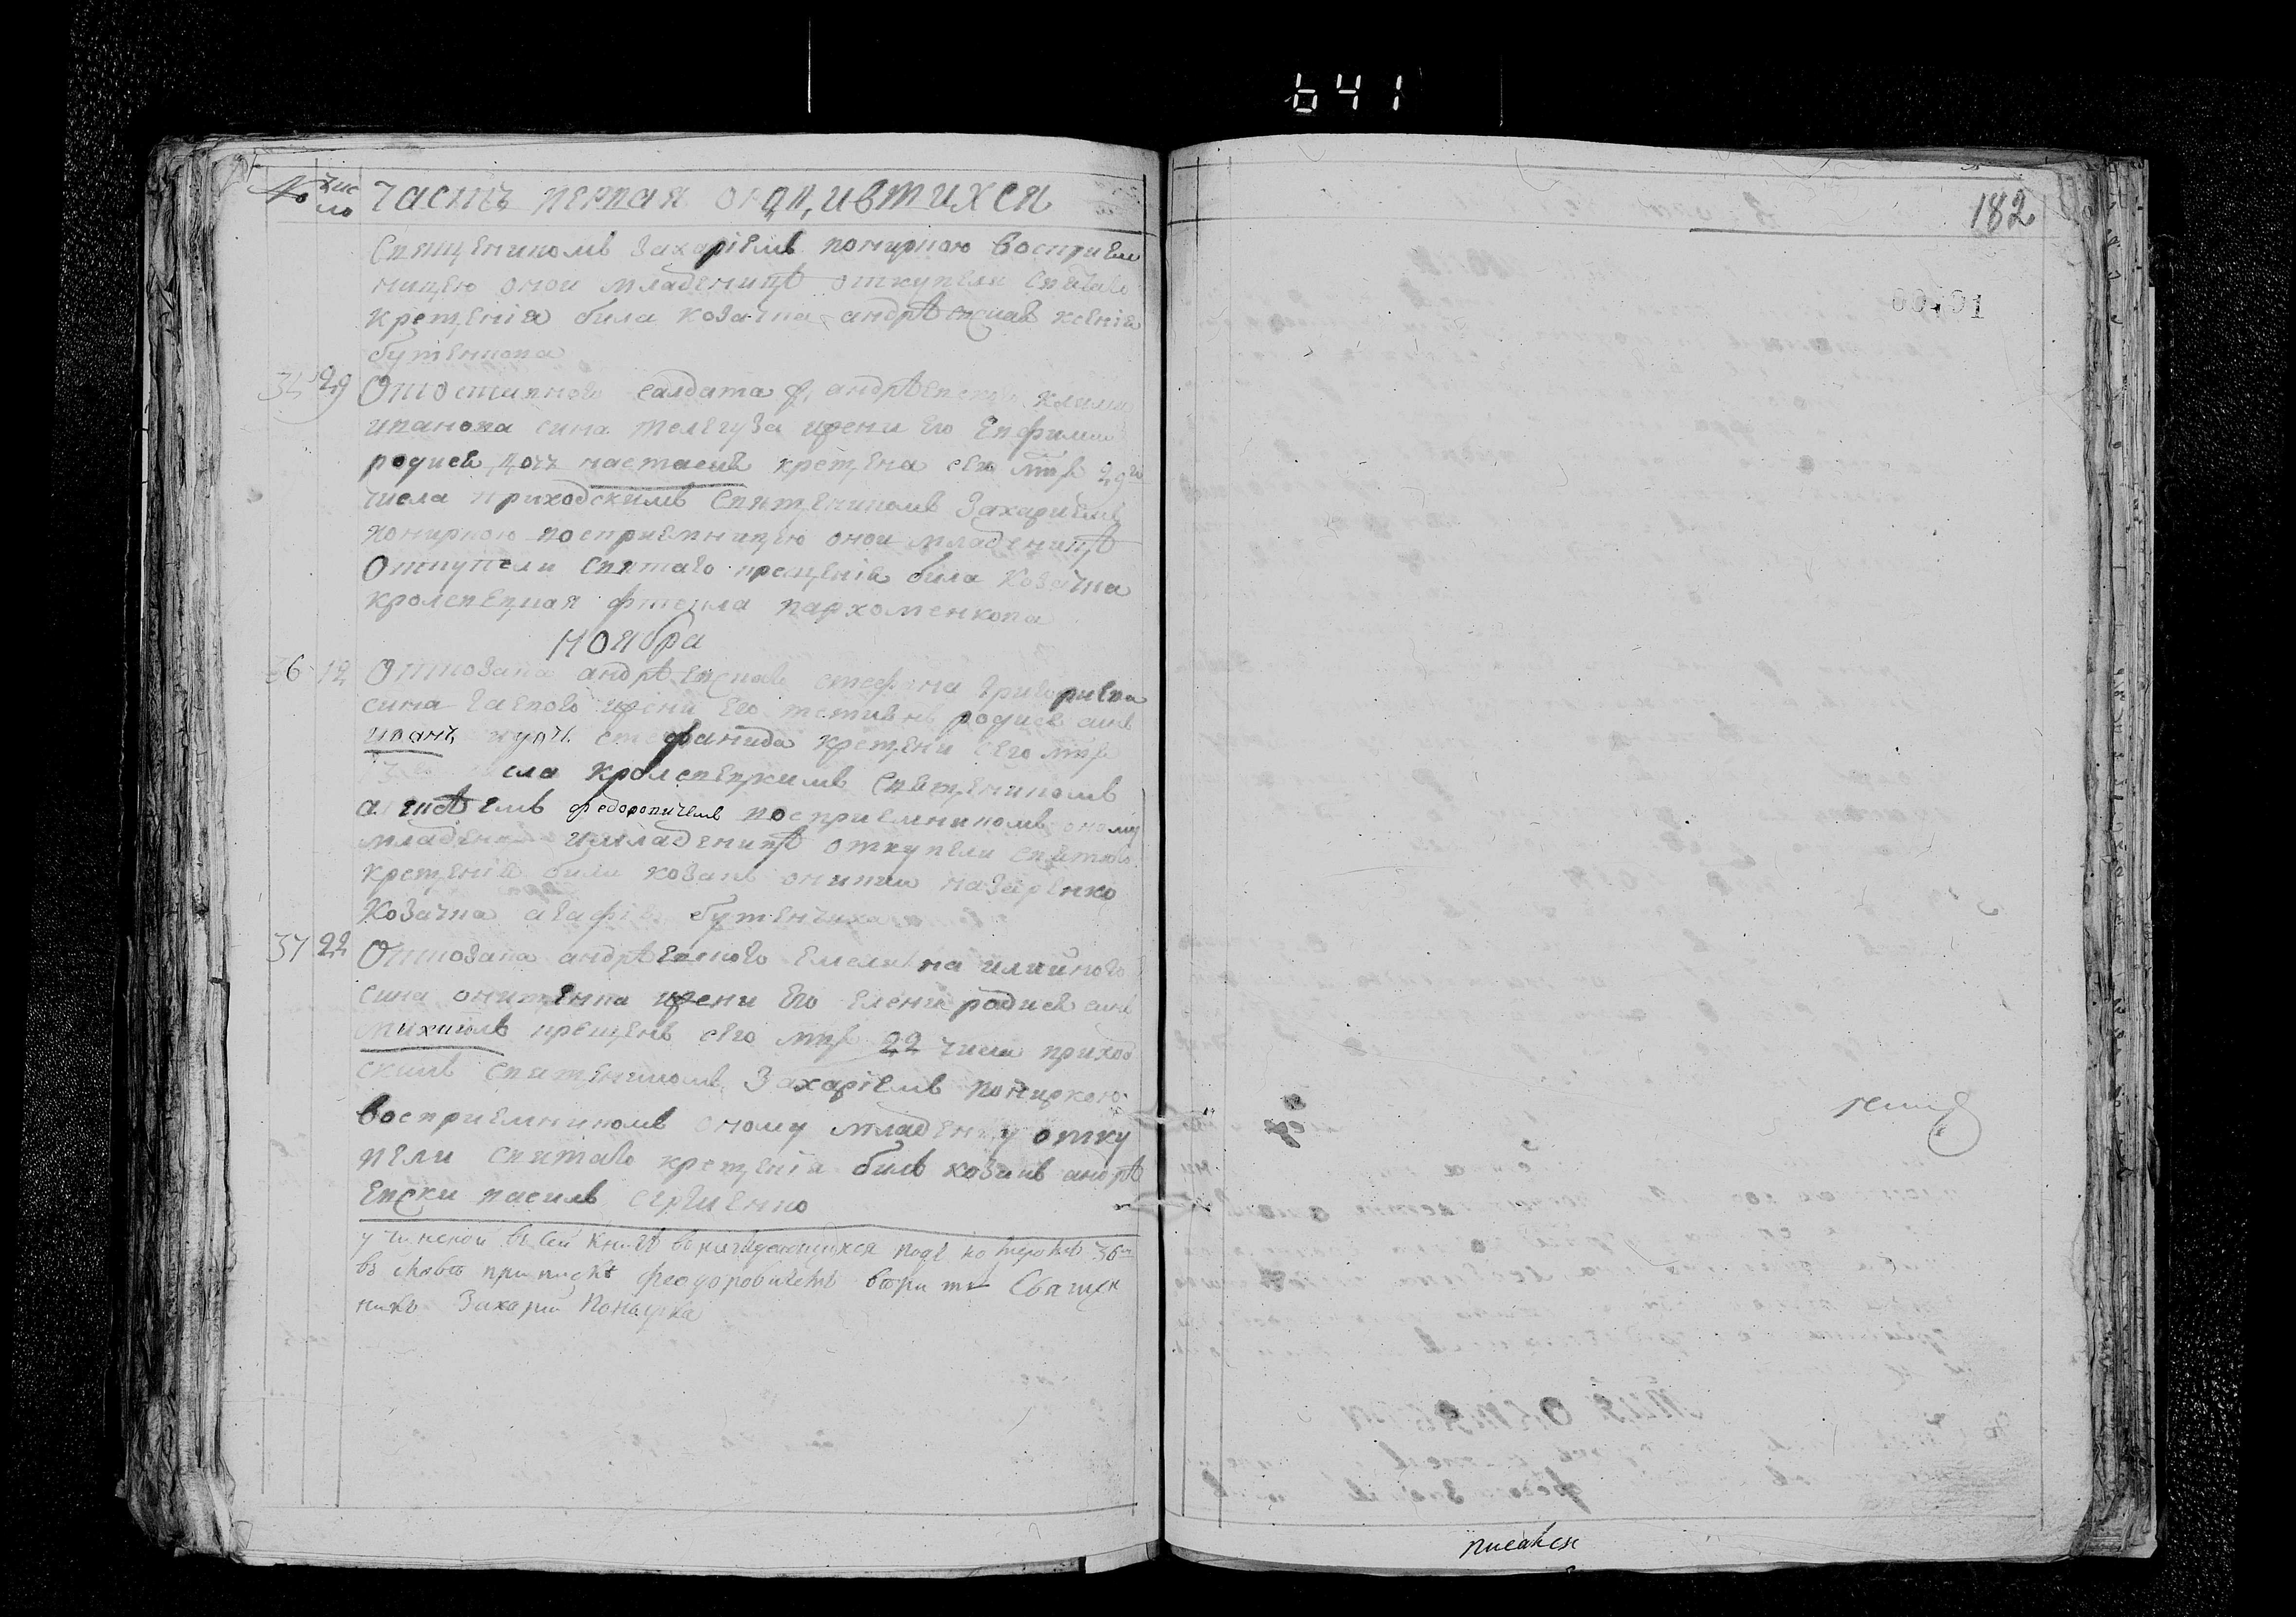 641
№ чис ло Часть первая о родившихся
священикомъ Захаріемъ Понирною восприем
ницею оной младенице откупели святаго
крещенія била козачка андрѣевская ксенія
бутенкова
29 Отоставного салдата андрѣевского клима
иванова сина телегуза и жени его Евфимии
родися дочъ настасия крещена сего мца 29го
числа приходскимъ священикомъ Захариемъ
понирною восприемницею оной младеницѣ
Откупели святаго крещенія била козачка
кролевецкая пархоменкова
Ноября
36 12 От козака андрѣевскаго стефана григориева
сина жени его родися синъ
иванъ и дочъ стефанида крещени сего мца
числа кролевецкимъ священикомъ
федоровичемъ восприемникомъ оному
младенцу и младеницѣ откупели святаго
крещенія били козакъ онишко назаренко
козачка агафія бутенчиха
37 22 От козака андрѣевского Емелияна илийного
сина онищенка и жени его Елени родися синъ
михаилъ крещенъ сего мца 22 числа приход
скимъ священикомъ Захаріемъ Понирною
восприемникомъ оному младенцу отку
пели святаго крещенія билъ козакъ андрѣ
евски василь сергиенко
учиненой въ сей книгѣ подъ номеромъ 36м
въ приписке Феодоровичемъ Священ
никъ Захарий Понирка
182
00401
писався